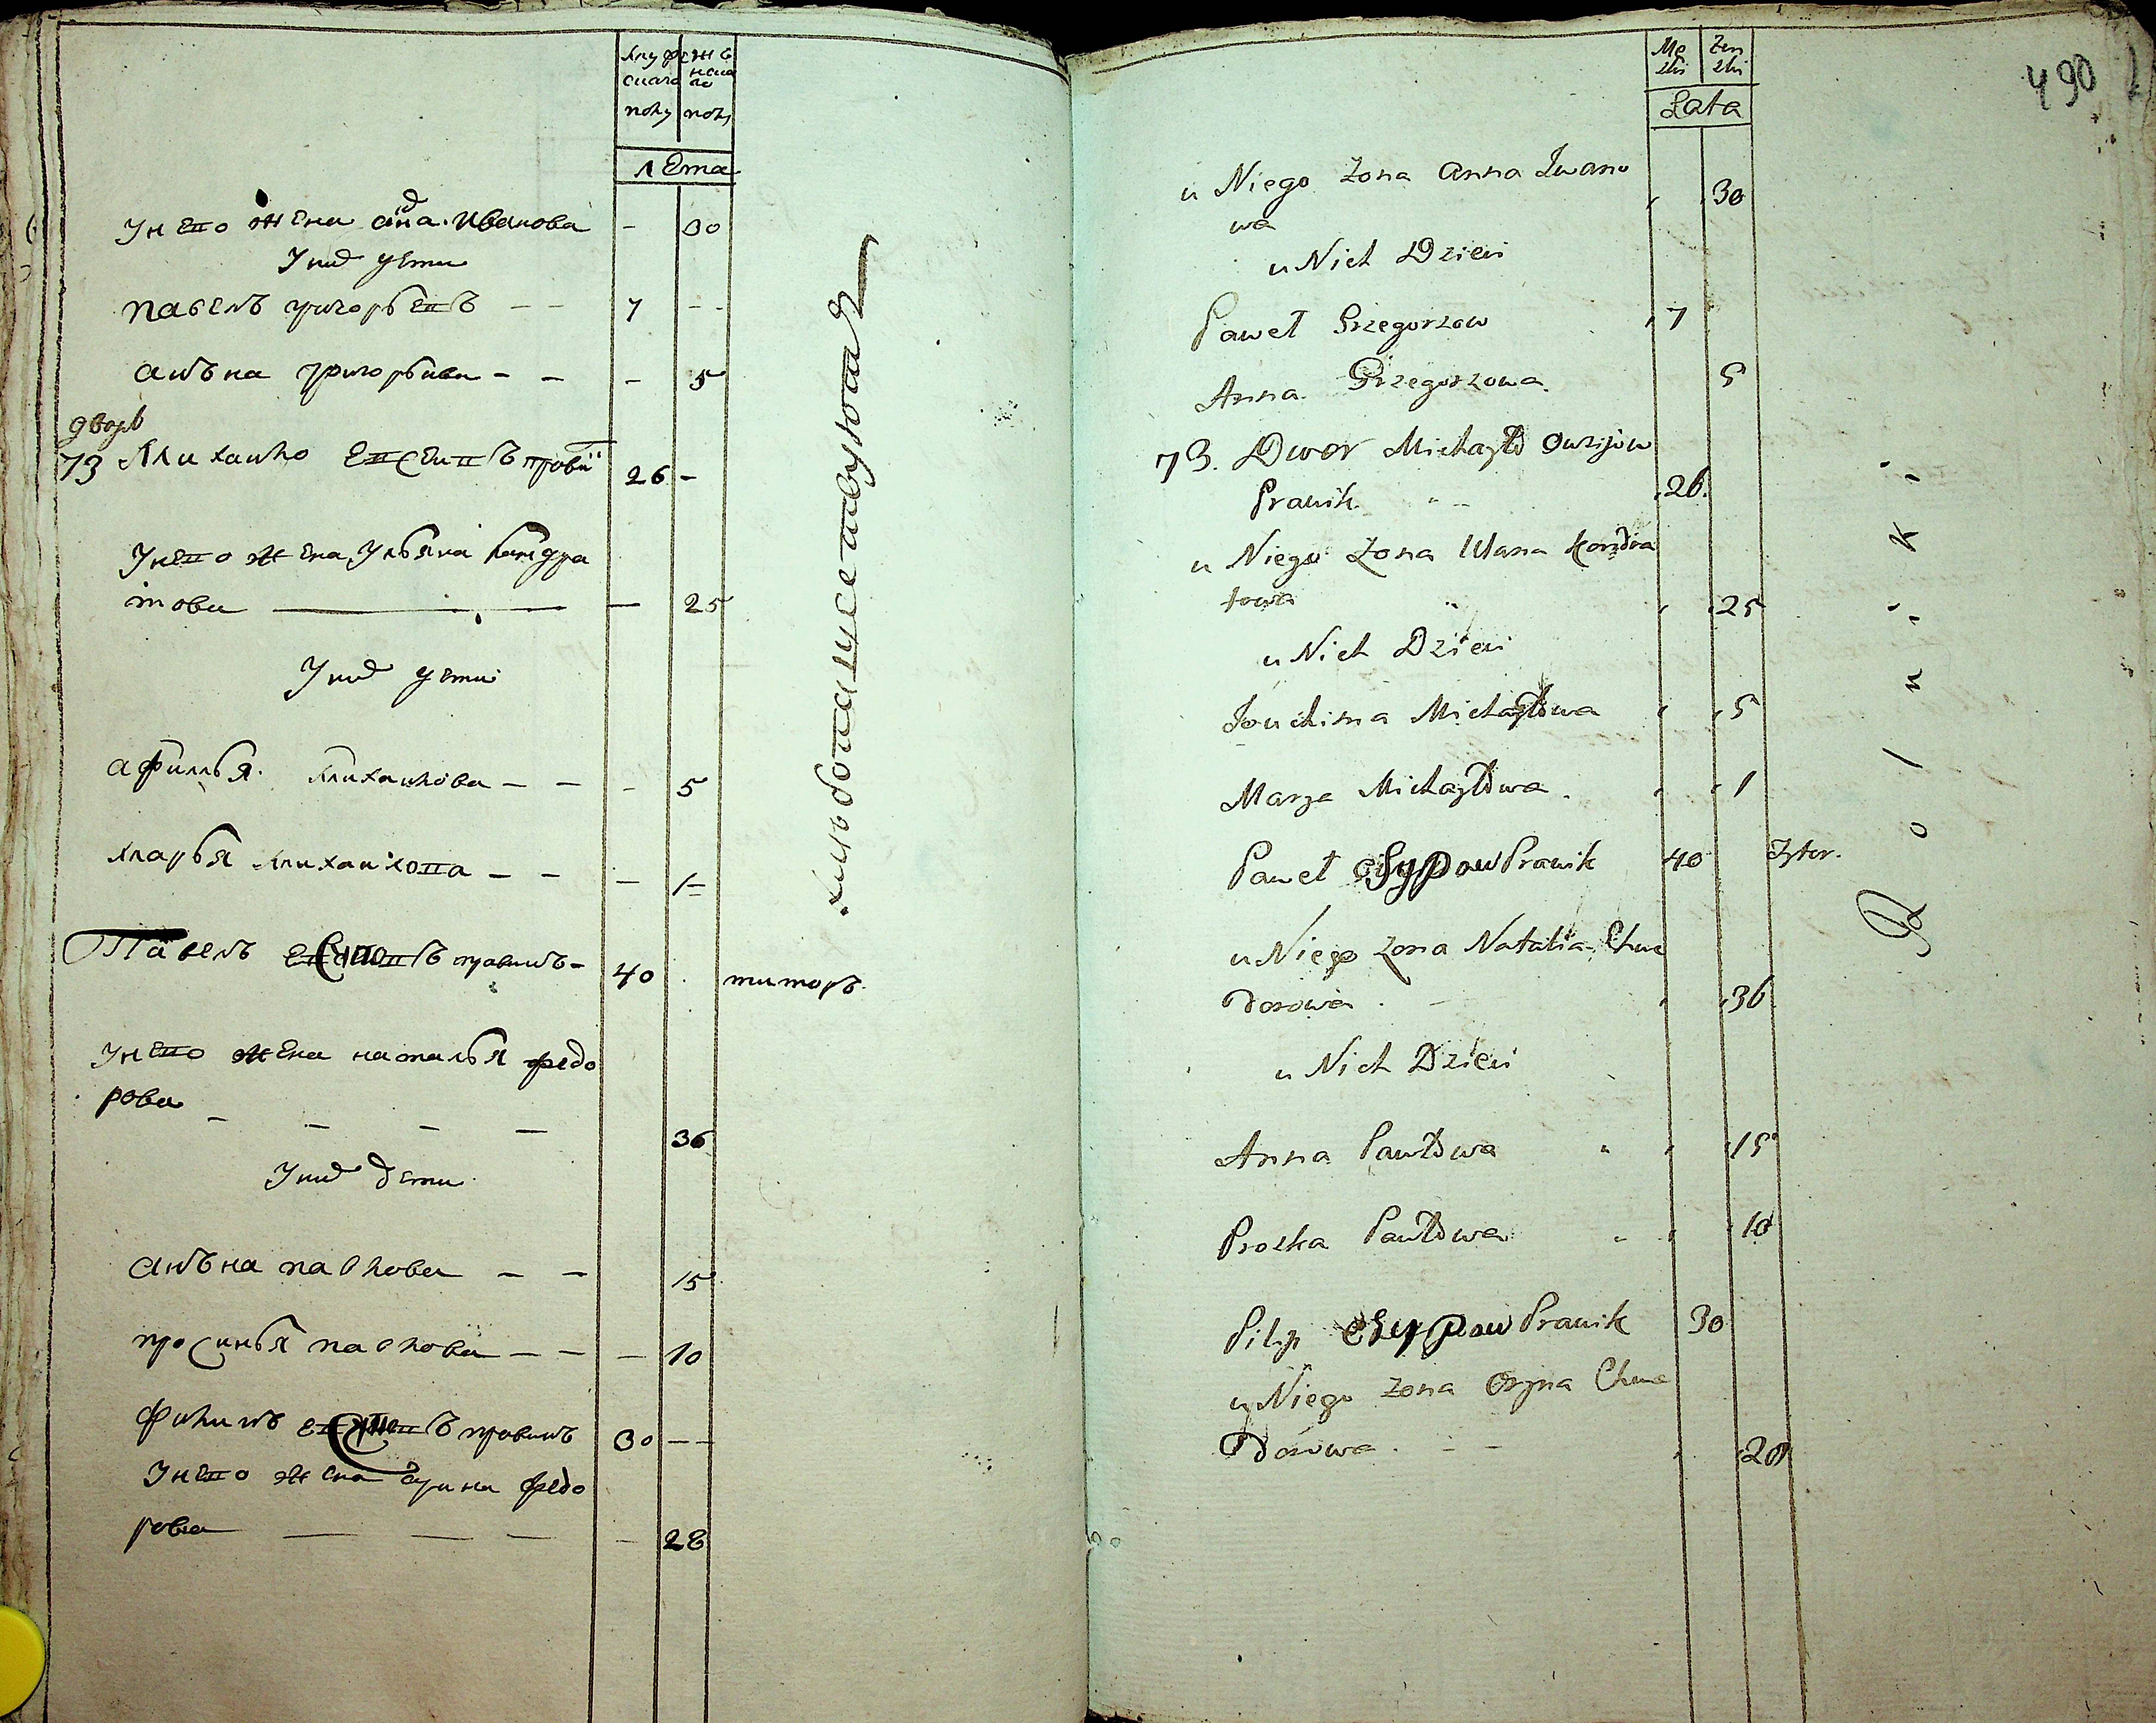 мужескаго полу
женскаго полу
лѣта
У него жена анна Иванова - 30
У них дети
павелъ григорьевъ - - 7 - -
анъна григорьива - - - 5
дворъ
73 Михайло Евсеивъ 26 -
У него жена Ульяна Кандра
това - 25
У них дети
афимья Михайлова - - - 5
Марья Михайлова - - - 1
Павелъ правикъ - 40 титоръ
У него жена наталья федо
рова - - - - 36
У них дети
анъна павлова - - 15
просинья павлова - - - 10
Филипъ правикъ 30 - -
У него жена арина федо
рова - 28
хлебопашествуютъ
490
Męzki Żenzki
Lata
u Niego Żona Anna Iwano
wa 30
u Nich Dzieci
Paweł Grzegorzow 7
Anna Grzegorzowa 5
73. Dwor Michayło Owsijow
Prawik 26.
u Niego Żona Ulana Kondra
towa 25
u Nich Dzieci
Jouchima Michayłowa 5
Marya Michayłowa 1
Paweł Prawik 40 Tytor.
u Niego Żona Natalia Chwe
dorowa 36
u Nich Dzieci
Anna Pawłowa 15
Proska Pawłowa 10
Pilip Prawik 30
u Niego Żona Oryna Chwe
dorowa 28
Rolniki